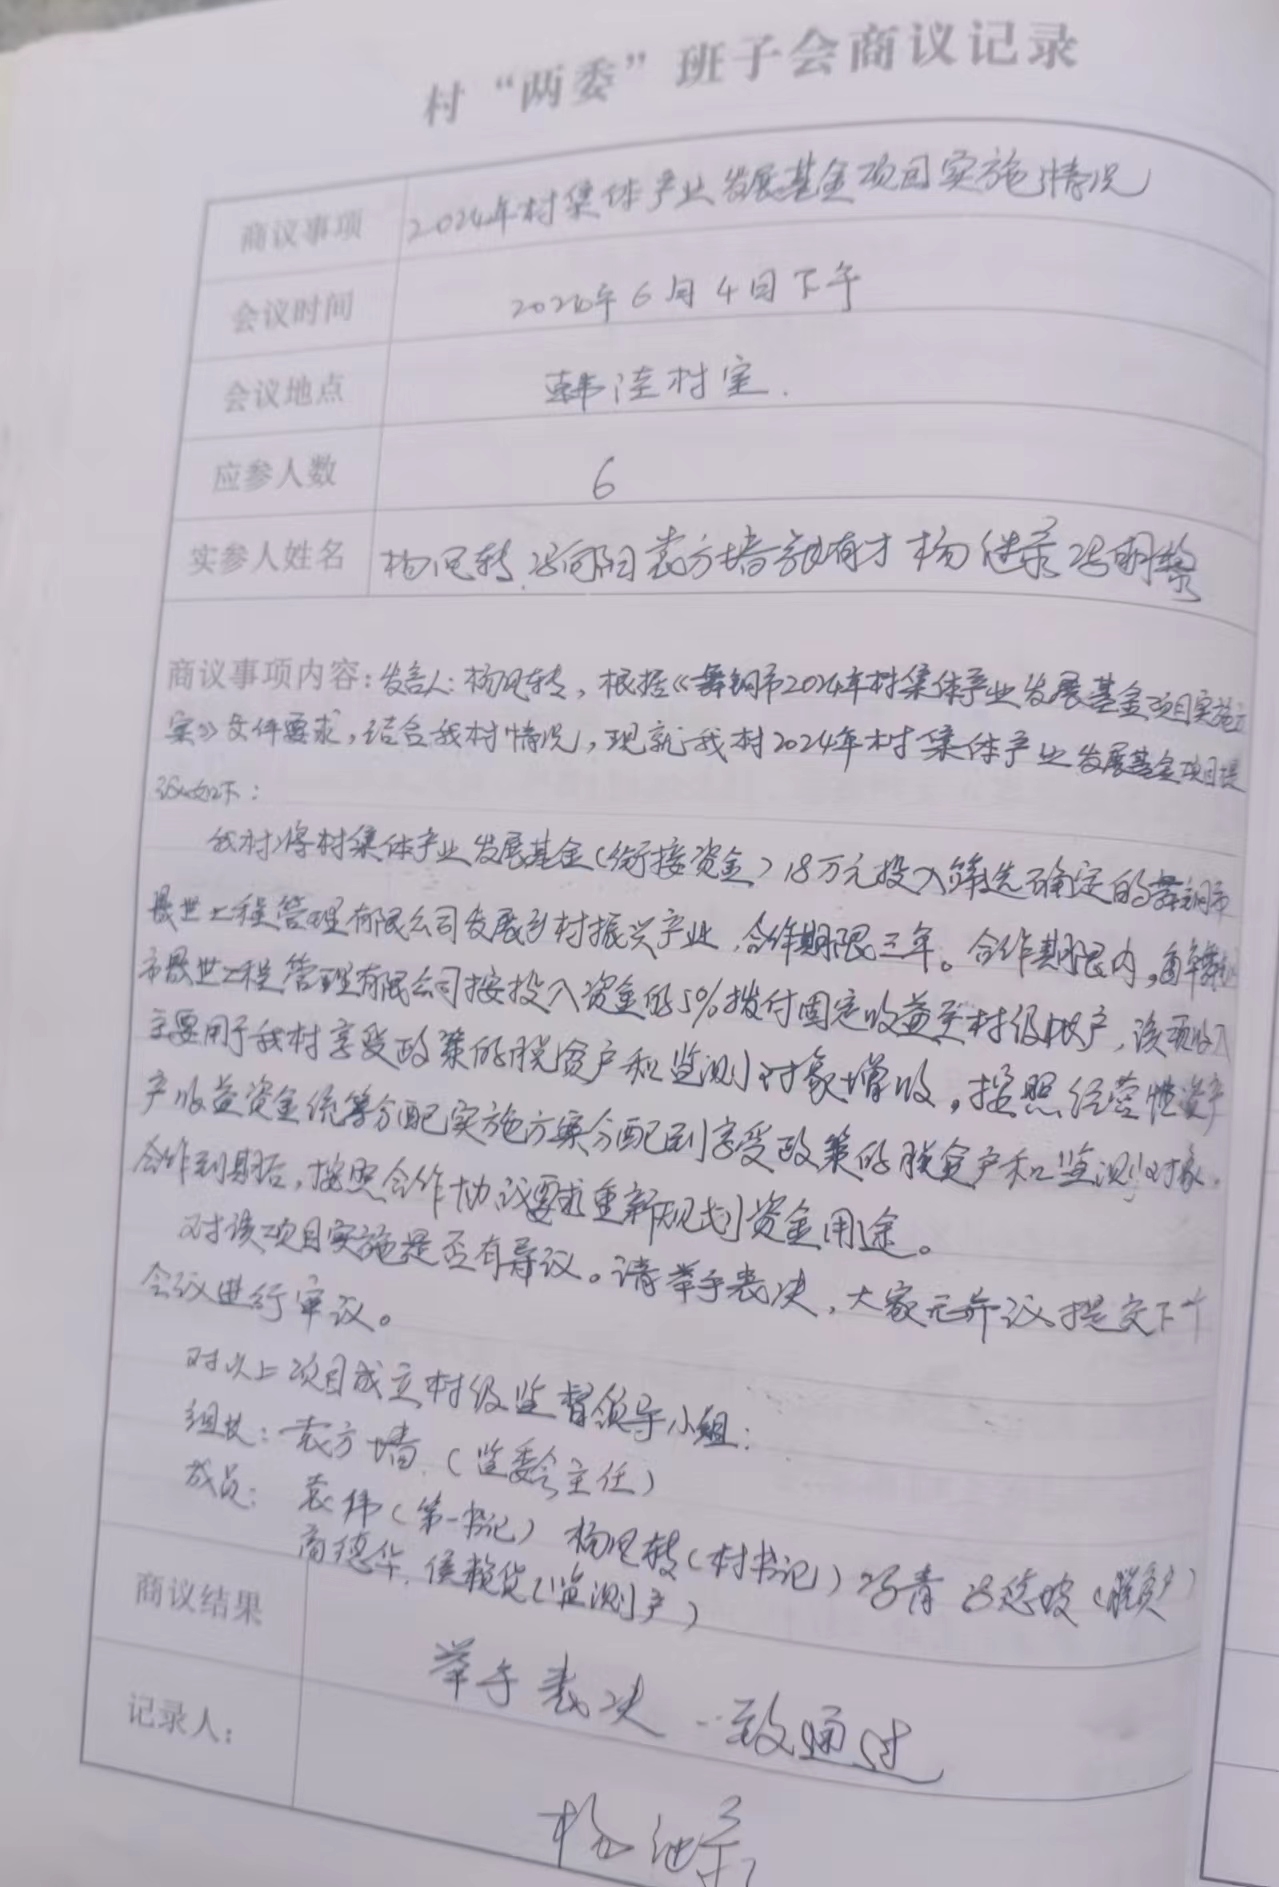 村“两委”班子会商议记录
商议事项 2024年村集体产业发展基金项目实施情况
会议时间 2024年6月4日下午
会议地点 韩洼村室.
应参人数 6
实参人姓名 杨风转 冯向阳 袁方墙 有才 杨继录 冯明
商议事项内容:发言人:杨风转,根据《舞钢市2024年村集体产业发展基金项目实施方
案》文件要求,结合我村情况,现就我村2024年村集体产业发展基金项目提
议如下:
我村将村集体产业发展基金(衔接资金)18万元投入筛选确定的舞钢市
晟世工程管理有限公司发展乡村振兴产业,合作期限三年。合作期限内,每年舞钢
市晟世工程管理有限公司按投入资金的5%拨付固定收益至村级账户,该项收入
主要用于我村享受政策的脱贫户和监测对象增收,按照经营性资产
产收益资金统筹分配实施方案分配到享受政策的脱贫户和监测对象.
合作到期后,按照合作协议要求重新规划资金用途。
对该项目实施是否有异议。请举手表决,大家无异议提交下个
会议进行审议。
对以上项目成立村级监督领导小组:
组长:袁方墙(监委会主任)
成员: 袁伟(第一书记) 杨风转(村书记) 冯青 冯 (脱贫户)
商德华. 侯赖货(监测户)
商议结果 举手表决 一致通过
记录人: 杨继录